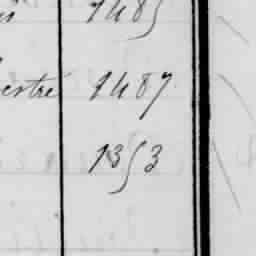 1485
estré 1487
1353